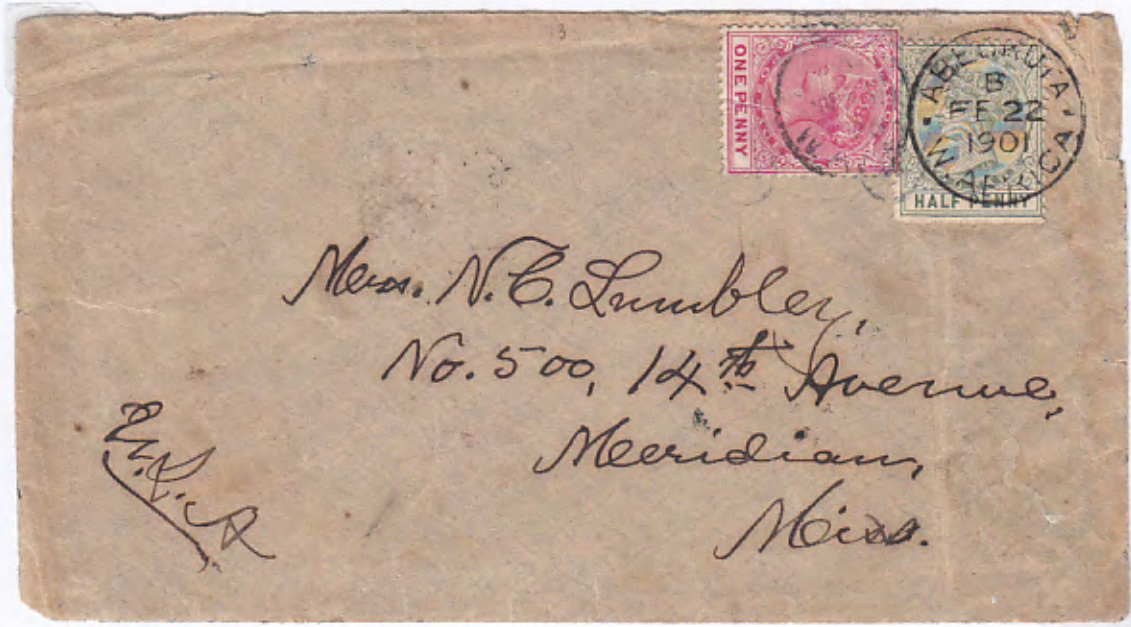 ONE PENNY
ABEOKUTA
B
FE 22
1901
W. AFRICA
HALF PENNY
Mrs. N. C. Lumbley,
No. 500, 14th Avenue,
Meridian,
Miss.
U.S.A